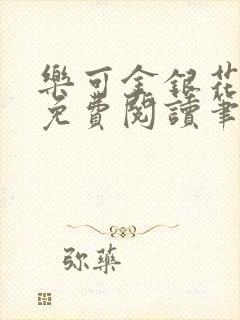 樂可金銀花
免費閱讀筆
弥藥